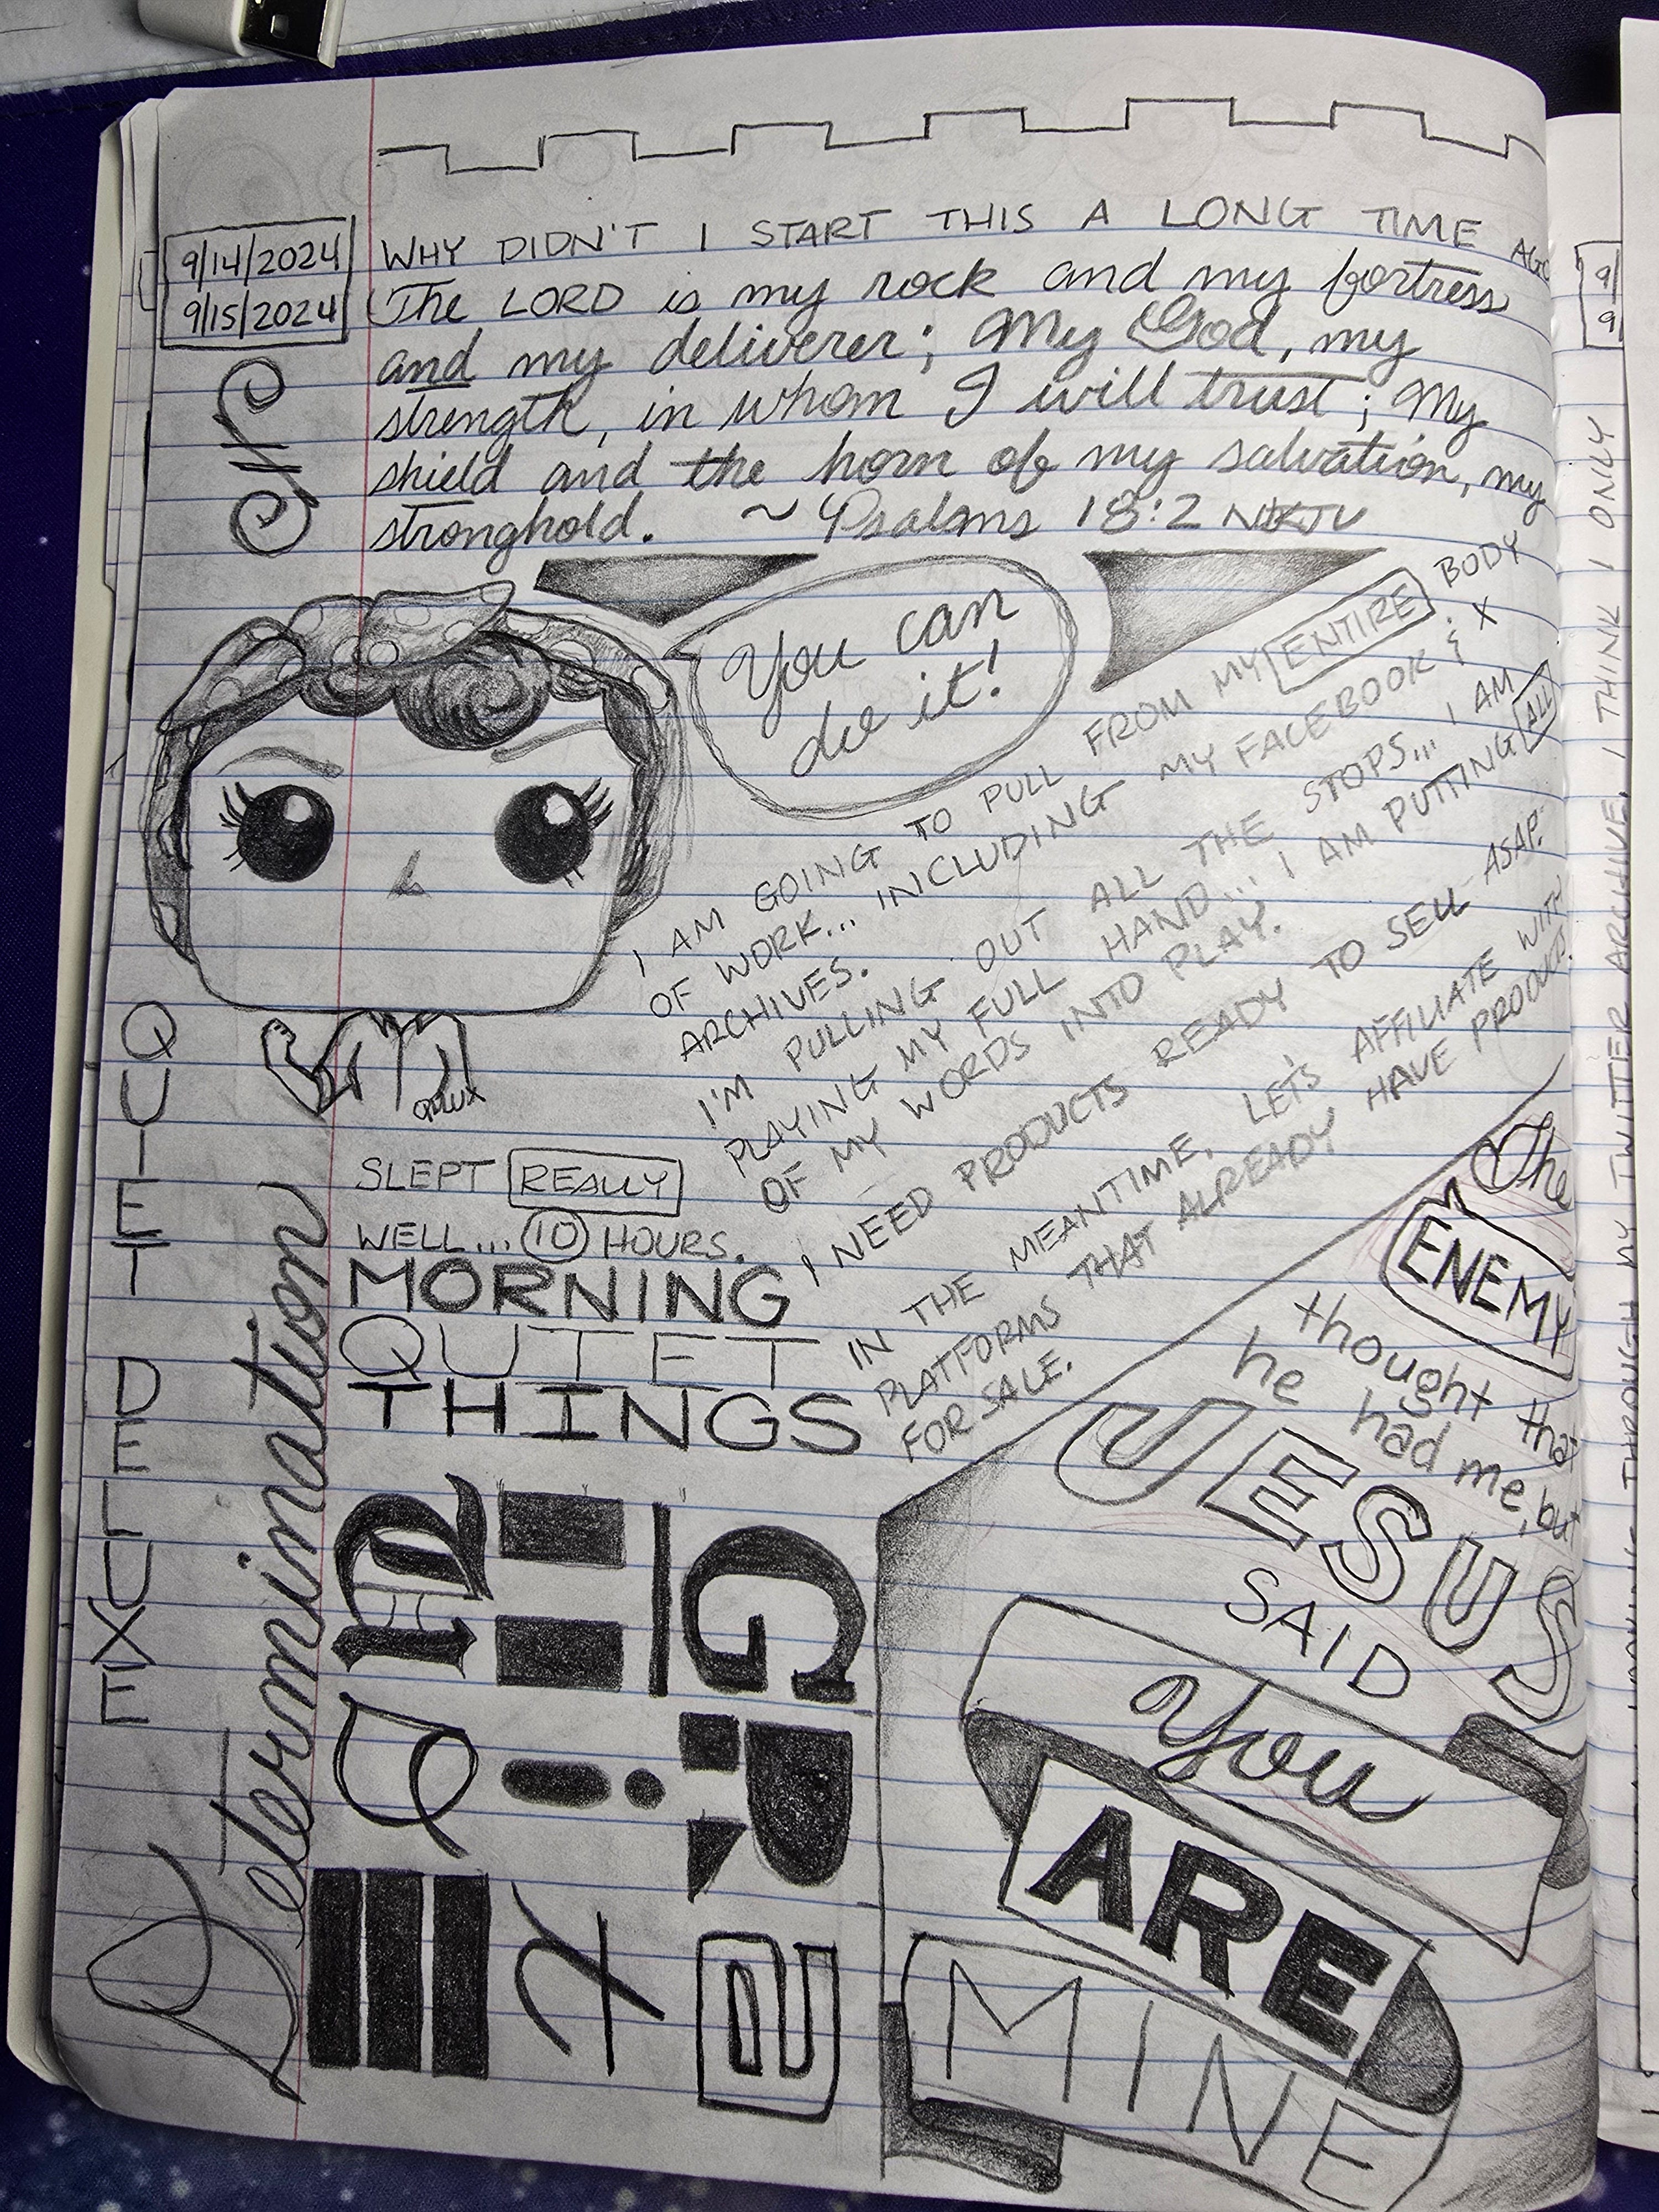 9/14/2024
9/15/2024
WHY DIDN'T I START THIS A LONG TIME AGO
The LORD is my rock and my fortress
and my deliverer; My God, my
strength, in whom I will trust; My
shield and the horn of my salvation, my
stronghold. ~ Psalms 18:2 NKJV
You can
do it!
I AM GOING TO PULL FROM MY ENTIRE BODY
OF WORK... INCLUDING MY FACEBOOK & X
ARCHIVES.
I'M PULLING OUT ALL THE STOPS... I AM
PLAYING MY FULL HAND... I AM PUTTING ALL
OF MY WORDS INTO PLAY.
I NEED PRODUCTS READY TO SELL ASAP.
IN THE MEANTIME, LET'S AFFILIATE WITH
PLATFORMS THAT ALREADY HAVE PRODUCTS
FOR SALE.
QUIET DELUXE
Determination
SLEPT REALLY
WELL... 10 HOURS.
MORNING
QUIET
THINGS
The
ENEMY
thought that
he had me, but
JESUS
SAID
You
ARE
MINE
9/
9/
I THINK I ONLY
THROUGH MY TWITTER ARCHIVE. I THINK I ONLY